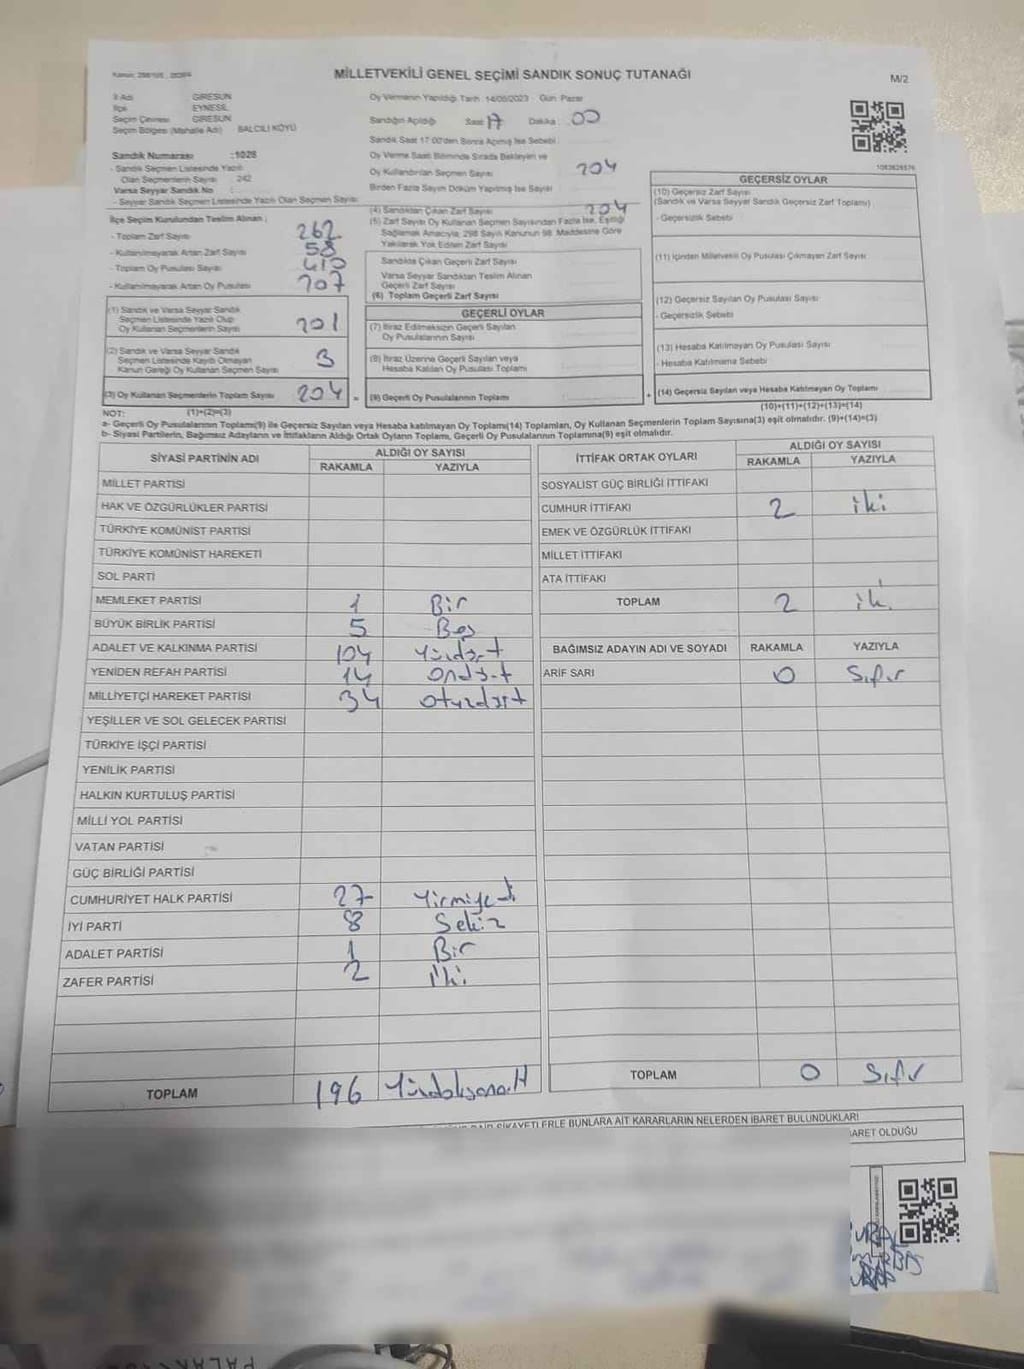 MİLLETVEKİLİ GENEL SEÇİMİ SANDIK SONUÇ TUTANAĞI
M/2
İl Adı GİRESUN
İlçe EYNESİL
Seçim Çevresi GİRESUN
Seçim Bölgesi (Mahalle Adı) BALCILI KÖYÜ
Oy Vermenin Yapıldığı Tarih 14/05/2023 Gün Pazar
Sandığın Açıldığı Saat 17 Dakika : 00
Sandık Saat 17:00'den Sonra Açılmış İse Sebebi :
Sandık Numarası :1028
- Sandık Seçmen Listesinde Yazılı
Olan Seçmenlerin Sayısı 242
Varsa Seyyar Sandık No :
- Seyyar Sandık Seçmen Listesinde Yazılı Olan Seçmen Sayısı
Oy Verme Saati Bitiminde Sırada Bekleyen ve
Oy Kullandırılan Seçmen Sayısı 204
Birden Fazla Sayım Döküm Yapılmış İse Sayısı
İlçe Seçim Kurulundan Teslim Alınan ;
- Toplam Zarf Sayısı 262
- Kullanılmayarak Artan Zarf Sayısı 58
- Toplam Oy Pusulası Sayısı 410
- Kullanılmayarak Artan Oy Pusulası 207
(1) Sandık ve Varsa Seyyar Sandık
Seçmen Listesinde Yazılı Olup
Oy Kullanan Seçmenlerin Sayısı 201
(2) Sandık ve Varsa Seyyar Sandık
Seçmen Listesinde Kaydı Olmayan
Kanun Gereği Oy Kullanan Seçmen Sayısı 3
(3) Oy Kullanan Seçmenlerin Toplam Sayısı 204 =
(1)+(2)=(3)
(4) Sandıktan Çıkan Zarf Sayısı 204
(5) Zarf Sayısı Oy Kullanan Seçmen Sayısından Fazla İse, Eşitliği
Sağlamak Amacıyla, 298 Sayılı Kanunun 98. Maddesine Göre
Yakılarak Yok Edilen Zarf Sayısı
Sandıkta Çıkan Geçerli Zarf Sayısı
Varsa Seyyar Sandıktan Teslim Alınan
Geçerli Zarf Sayısı
(6) Toplam Geçerli Zarf Sayısı
GEÇERLİ OYLAR
(7) İtiraz Edilmeksizin Geçerli Sayılan
Oy Pusulalarının Sayısı
(8) İtiraz Üzerine Geçerli Sayılan veya
Hesaba Katılan Oy Pusulası Toplamı
(9) Geçerli Oy Pusulalarının Toplamı +
GEÇERSİZ OYLAR
(10) Geçersiz Zarf Sayısı
(Sandık ve Varsa Seyyar Sandık Geçersiz Zarf Toplamı)
- Geçersizlik Sebebi
(11) İçinden Milletvekili Oy Pusulası Çıkmayan Zarf Sayısı
(12) Geçersiz Sayılan Oy Pusulası Sayısı
- Geçersizlik Sebebi
(13) Hesaba Katılmayan Oy Pusulası Sayısı
- Hesaba Katılmama Sebebi
(14) Geçersiz Sayılan veya Hesaba Katılmayan Oy Toplamı
(10)+(11)+(12)+(13)=(14)
NOT:
a- Geçerli Oy Pusulalarının Toplamı(9) ile Geçersiz Sayılan veya Hesaba katılmayan Oy Toplamı(14) Toplamları, Oy Kullanan Seçmenlerin Toplam Sayısına(3) eşit olmalıdır. (9)+(14)=(3)
b- Siyasi Partilerin, Bağımsız Adayların ve İttifakların Aldığı Ortak Oyların Toplamı, Geçerli Oy Pusulalarının Toplamına(9) eşit olmalıdır.
SİYASİ PARTİNİN ADI ALDIĞI OY SAYISI
RAKAMLA YAZIYLA
MİLLET PARTİSİ
HAK VE ÖZGÜRLÜKLER PARTİSİ
TÜRKİYE KOMÜNİST PARTİSİ
TÜRKİYE KOMÜNİST HAREKETİ
SOL PARTİ
MEMLEKET PARTİSİ 1 Bir
BÜYÜK BİRLİK PARTİSİ 5 Beş
ADALET VE KALKINMA PARTİSİ 104 Yüzdört
YENİDEN REFAH PARTİSİ 14 Ondört
MİLLİYETÇİ HAREKET PARTİSİ 34 Otuzdört
YEŞİLLER VE SOL GELECEK PARTİSİ
TÜRKİYE İŞÇİ PARTİSİ
YENİLİK PARTİSİ
HALKIN KURTULUŞ PARTİSİ
MİLLİ YOL PARTİSİ
VATAN PARTİSİ
GÜÇ BİRLİĞİ PARTİSİ
CUMHURİYET HALK PARTİSİ 27 Yirmiyedi
İYİ PARTİ 8 Sekiz
ADALET PARTİSİ 1 Bir
ZAFER PARTİSİ 2 İki
TOPLAM 196 Yüzdoksanaltı
İTTİFAK ORTAK OYLARI ALDIĞI OY SAYISI
RAKAMLA YAZIYLA
SOSYALİST GÜÇ BİRLİĞİ İTTİFAKI
CUMHUR İTTİFAKI 2 iki
EMEK VE ÖZGÜRLÜK İTTİFAKI
MİLLET İTTİFAKI
ATA İTTİFAKI
TOPLAM 2 iki
BAĞIMSIZ ADAYIN ADI VE SOYADI RAKAMLA YAZIYLA
ARİF SARI 0 Sıfır
TOPLAM 0 Sıfır
ŞİKAYETLERLE BUNLARA AİT KARARLARIN NELERDEN İBARET BULUNDUKLARI
BARET OLDUĞU